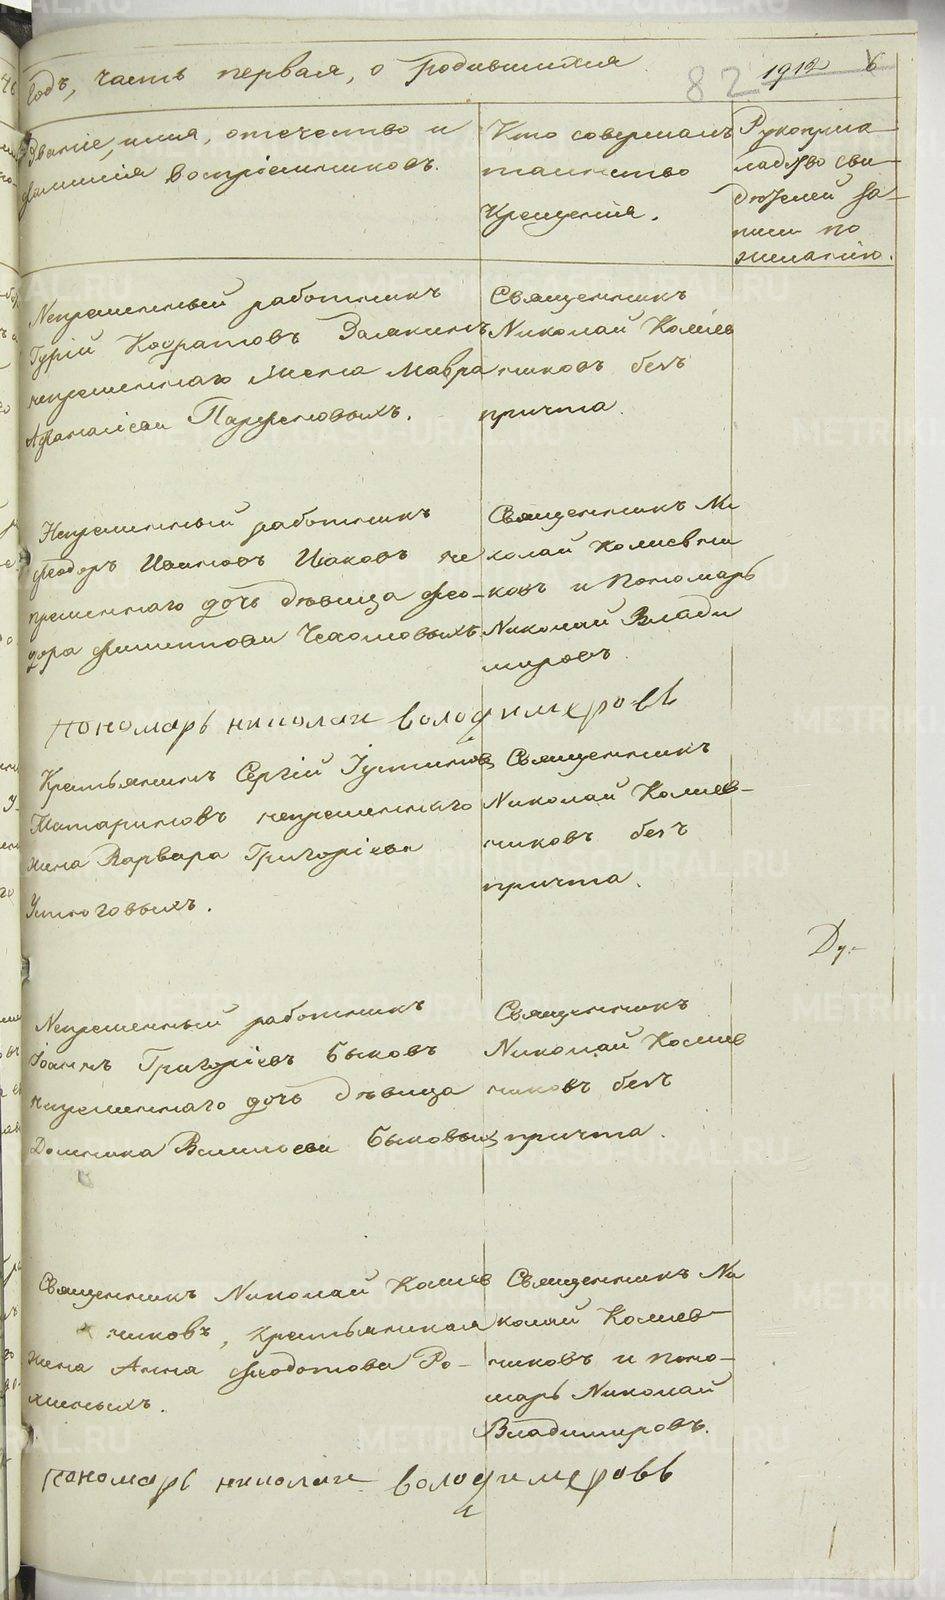 Годъ, часть первая, о родившихся
82 1912 6
Званіе, имя, отечество и
фамилія воспріемниковъ.
Кто совершалъ
таинство
Крещенія.
Рукоприк-
ладство сви-
дѣтелей за-
писи по
желанію.
Непременный работникъ
Гурій Кодратовъ
непременнаго жена Мавра
Афанасіева Парфеновыхъ.
Священникъ
Николай Комев
чиковъ безъ
причта.
Непременный работникъ
Феодоръ Ивановъ Исаковъ не
пременнаго дочь дѣвица Фео-
дора Филиппова
Священникъ Ни
колай Комевчи
ковъ и Пономарь
Николай Влади
мировъ
пономарь николаи володимеровъ
Крестьянинъ Сергій Іустиновъ
Татариновъ непременнаго
жена Варвара Григоріева
Утюговыхъ.
Священникъ
Николай Комев-
чиковъ безъ
причта.
Ду-
Непременный работникъ
Іоаннъ Григоріевъ Быковъ
непременнаго дочь дѣвица
Домника Василіева Быковыхъ
Священникъ
Николай Комев
чиковъ безъ
причта.
Священникъ Николай Комев
чиковъ, крестьянская
жена Анна Феодотова Ро-
жиныхъ.
Священникъ Ни
колай Комев-
чиковъ и поно-
марь Николай
Владимировъ.
пономарь николаи володимеровъ
METRIKI.GASO-URAL.RU